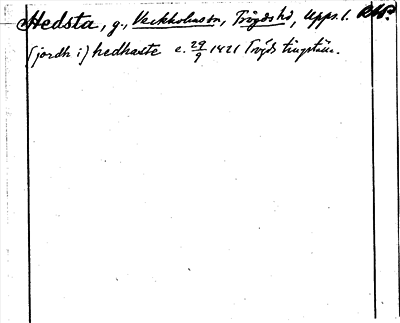 Hedsta, g., Veckholms sn, Trögds hd, Upps. l. RAP.
(jordh i:) hedhaste c. 29/9 1421 Tröds tingställe.